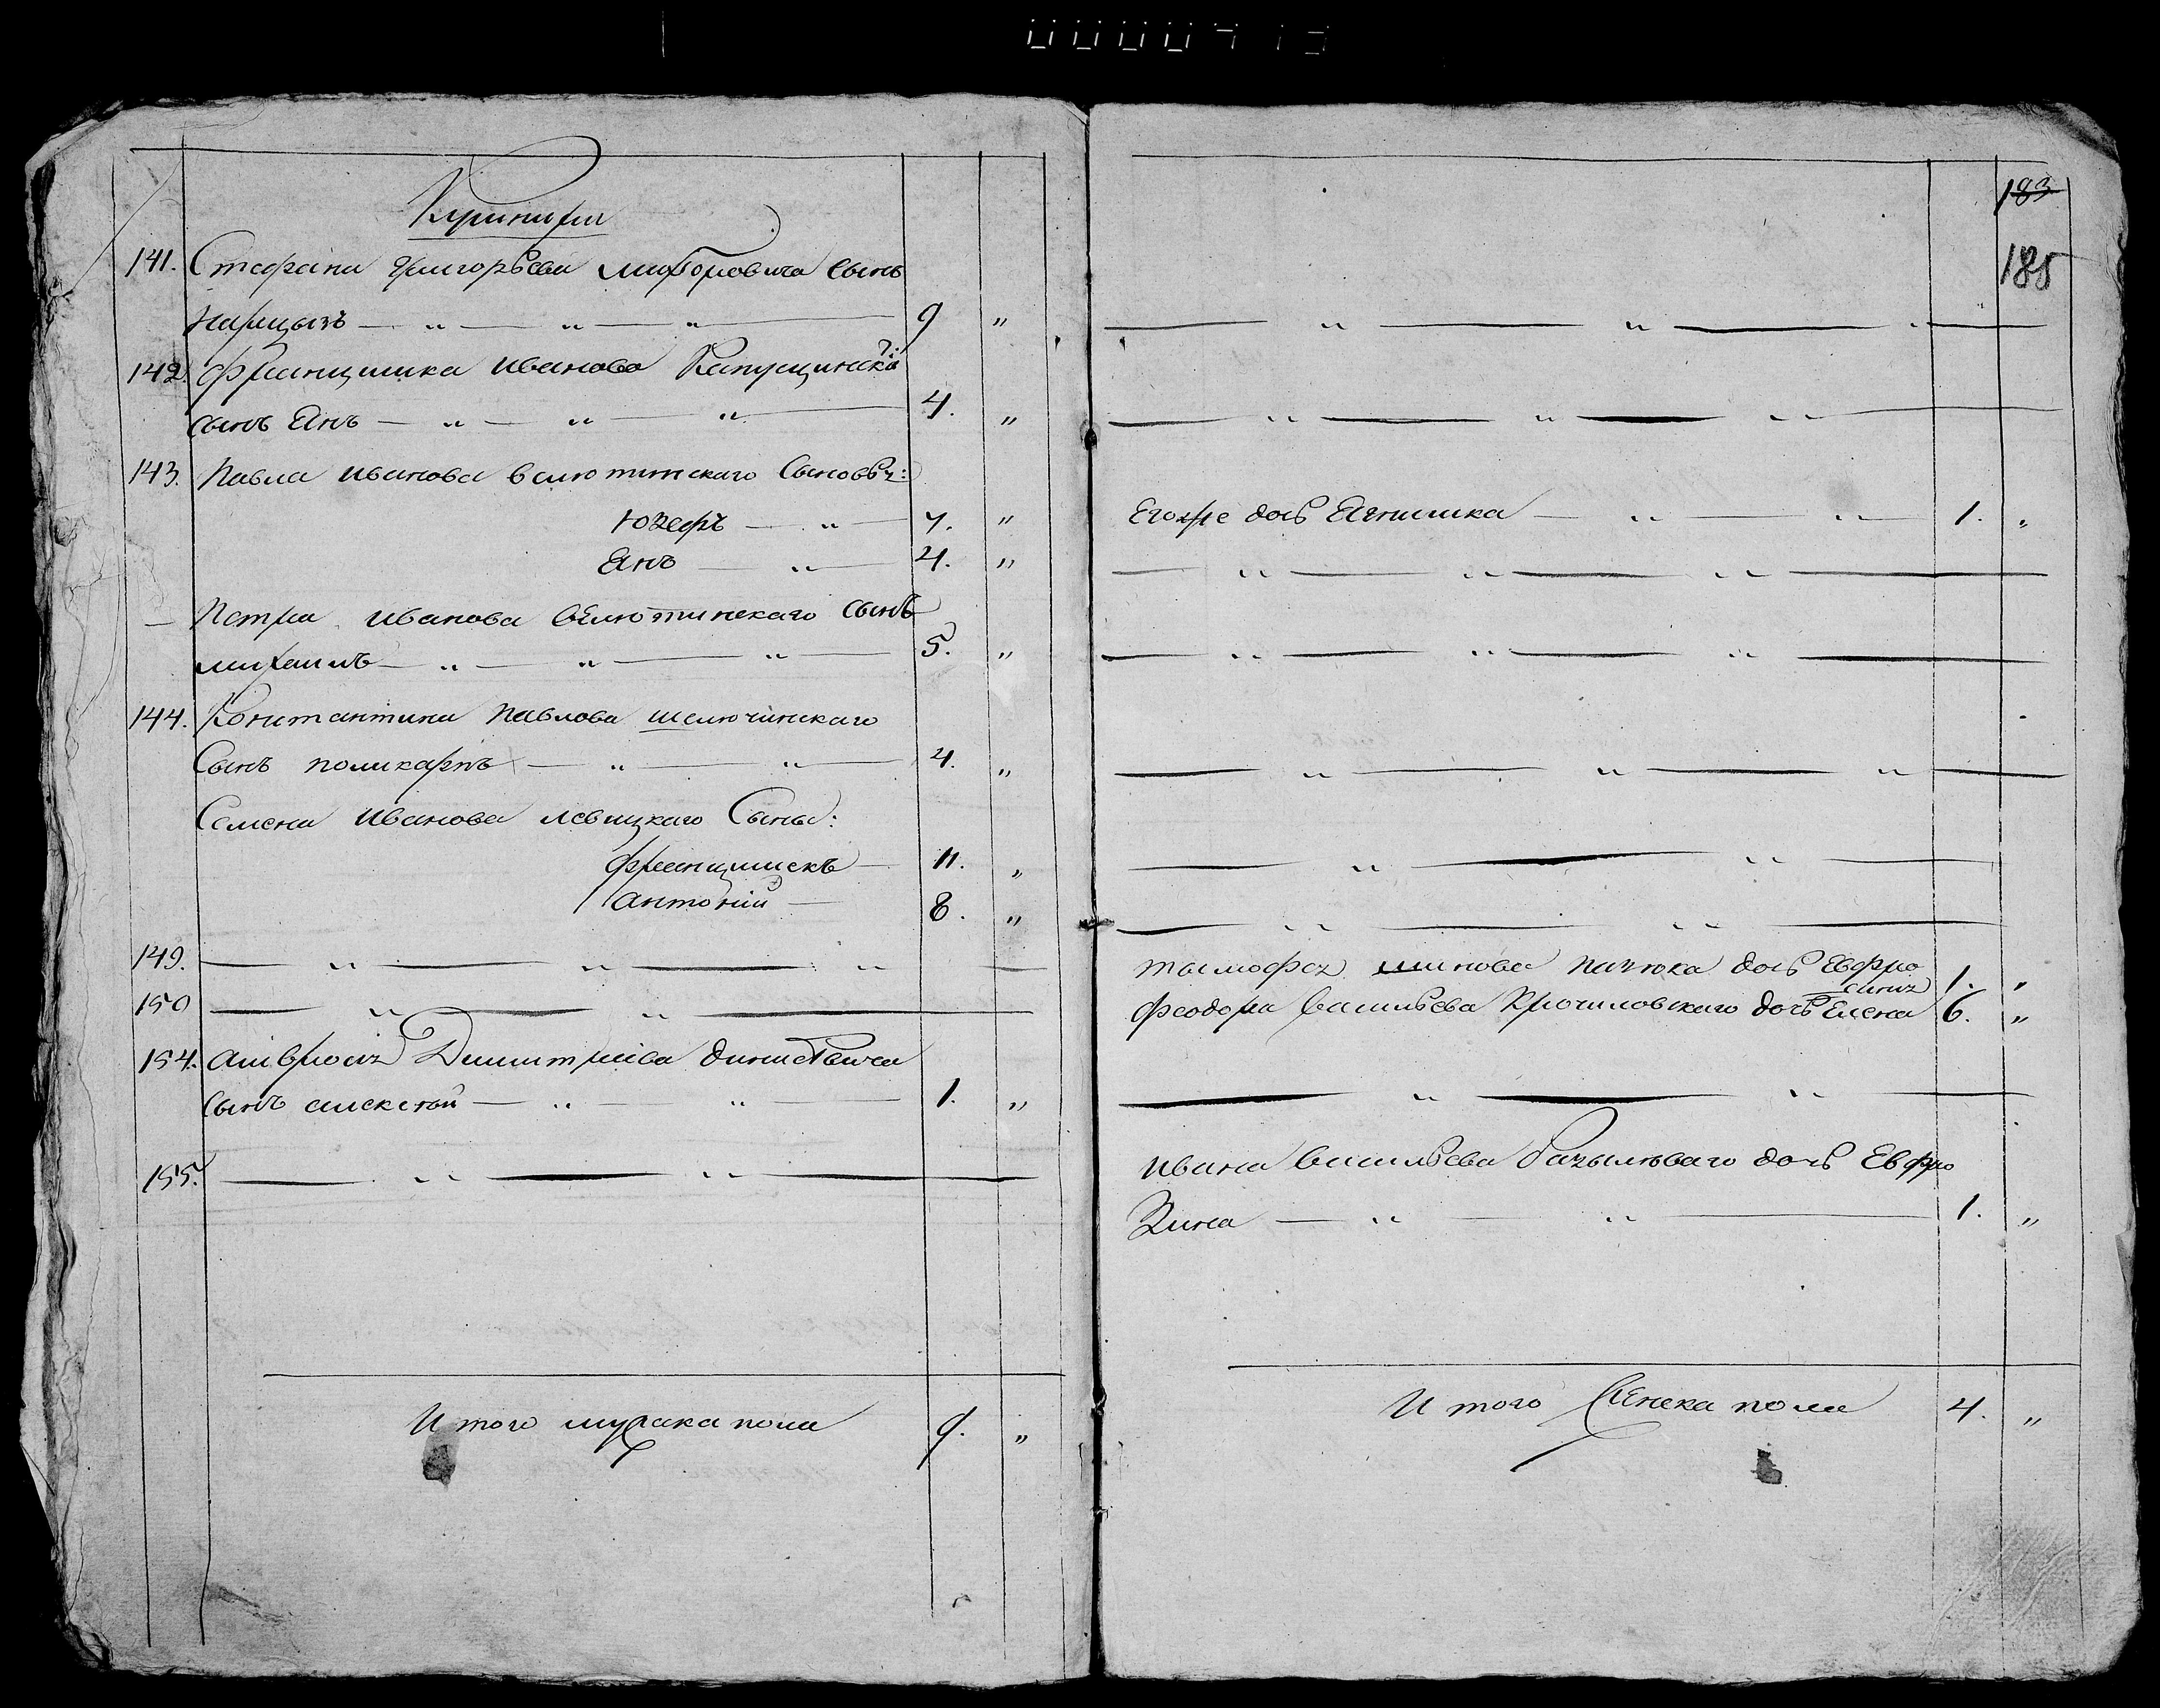 141. Стефана Григорьева сынъ
Нарцызъ — „ — „ — „ — 9 „
142. Францишка Иванова Капущинскаго
сынъ Янъ — „ — „ — „ — 4. „
143. Павла Иванова Велютинскаго Сыновья:
Юзефъ — „ — 7. „
Янъ — „ — 4. „
— Петра Иванова Велютинскаго сынъ
михаилъ — „ — „ — „ — 5. „
144. Константина Павлова шелючинскаго
Сынъ поликарпъ — „ — „ — 4. „
Семена Иванова левицкаго Сыны:
францишекъ — 11. „
Антоній — 8. „
149. — „ — „ — „ —
150 — „ — „ —
154. Амвросія Димитріева
сынъ алексѣй — „ — „ — 1. „
155. — „ — „ —
Итого мужска пола 9. „
183
185
Егожже дочь — „ — „ — 1. „
дочь Евфро
синия 1. „
Феодора Васильева Крочиловскаго дочь Елена 6. „
Ивана Васильева дочь Евфро
зина — „ — „ — 1. „
Итого Женска пола 4. „